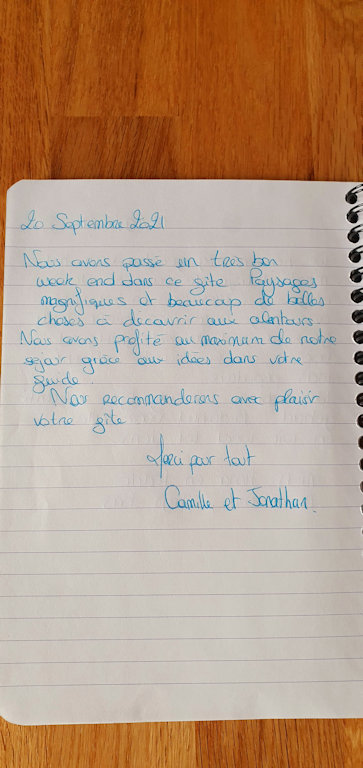 20 Septembre 2021
Nous avons passé un très bon
week end dans ce gîte. Paysages
magnifiques et beaucoup de belles
choses à découvrir aux alentours.
Nous avons profité au maximum de notre
séjour grâce aux idées dans votre
guide.
Nous recommanderons avec plaisir
votre gîte
Merci pour tout
Camille et Jonathan.